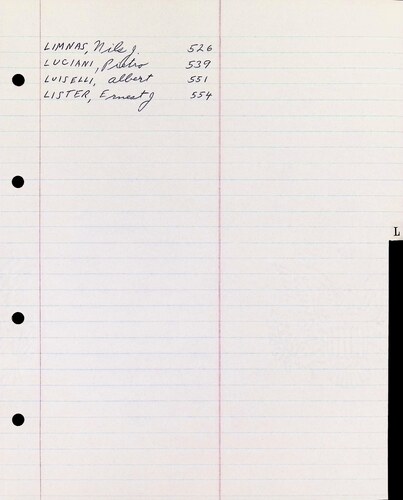 LIMNAS, Nils J. 526
LUCIANI, Pietro 539
LUISELLI, Albert 551
LISTER, Ernest J 554
L